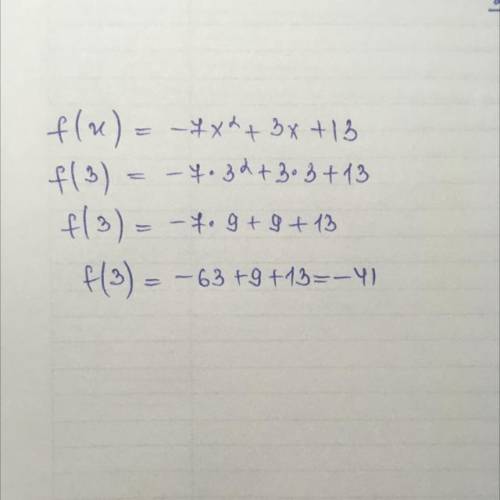 f(x) = -7x² + 3x + 13
f(3) = -7·3² + 3·3 + 13
f(3) = -7·9 + 9 + 13
f(3) = -63 + 9 + 13 = -41